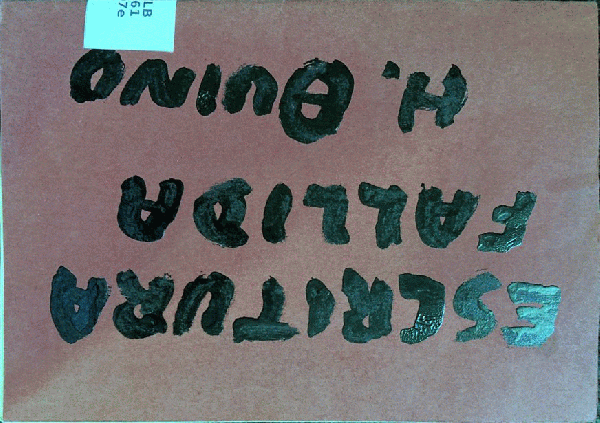 ESCRITURA
FALLIDA
H. AQUINO
LB
61
7e